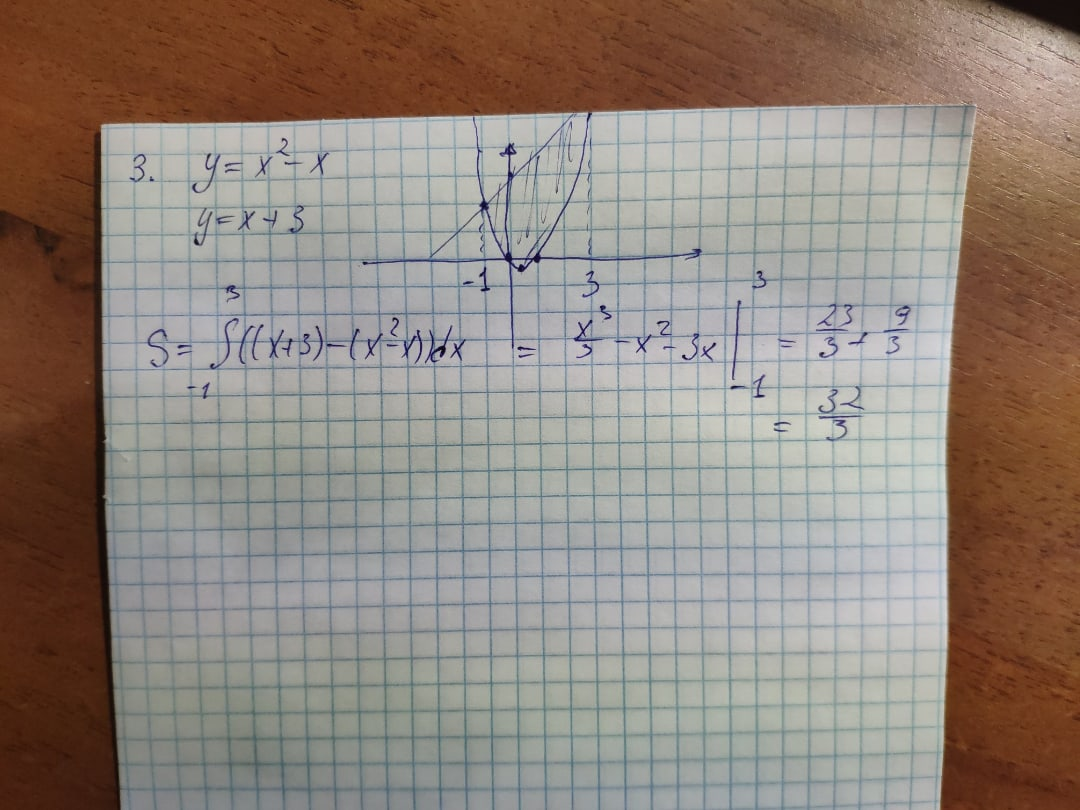 3. y = x² - x
y = x + 3
-1 3
S = ∫₋₁³ ((x+3) - (x² - x)) dx = x³/3 - x² - 3x |₋₁³ = 23/3 + 9/3
= 32/3